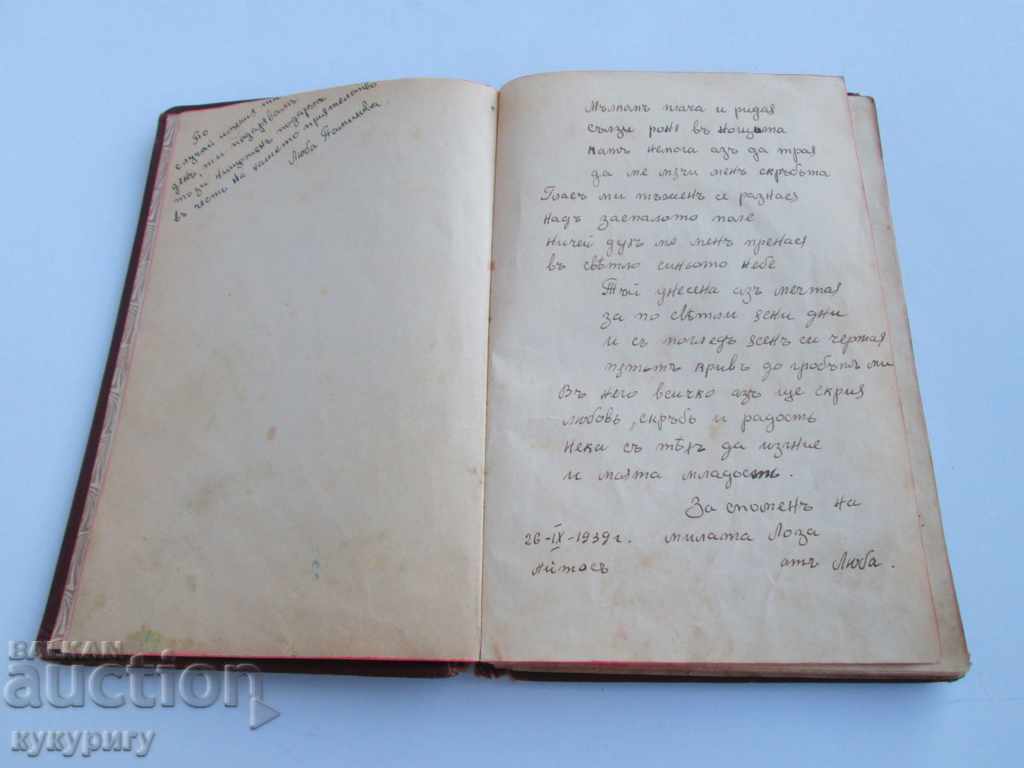 По
случай имения ти
день, ти подарявамъ
този нищоженъ подаръкъ
въ честь на нашето приятелство
Люба
Мълкомъ плача и ридая
сълзи роня въ нощьта
катъ немога азъ да трая
да ме мѫчи менъ скръбьта
Гласъ ми тъженъ се разнася
надъ заспалото поле
ничей духъ ме менъ пренася
въ свѣтло синьото небе
Тъй унесена азъ мечтая
за по свѣтли ясни дни
и съ погледъ ясенъ си чертая
пѫтътъ кривъ до гробътъ ми
Въ него всичко азъ ще скрия
любовь, скръбь и радость
нека съ тѣхъ да изгние
и моята младость.
За споменъ на
26-IX-1939 г. милата Лоза
Айтосъ отъ Люба.
BALKAN
auction
кукуригу